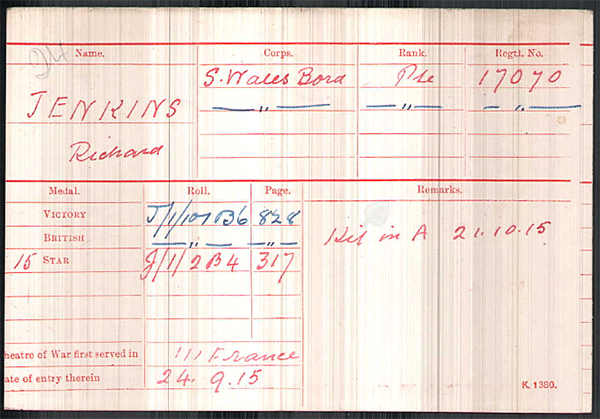 24
Name. Corps. Rank. Regtl. No.
JENKINS S. Wales Bord Pte 17070
Richard — " — — " — — " —
Medal. Roll. Page. Remarks.
VICTORY J/1/101 B6 828
BRITISH — " — — " — Kil in A 21.10.15
15 STAR J/1/2 B4 317
heatre of War first served in 111 France
ate of entry therein 24. 9. 15
K. 1380.